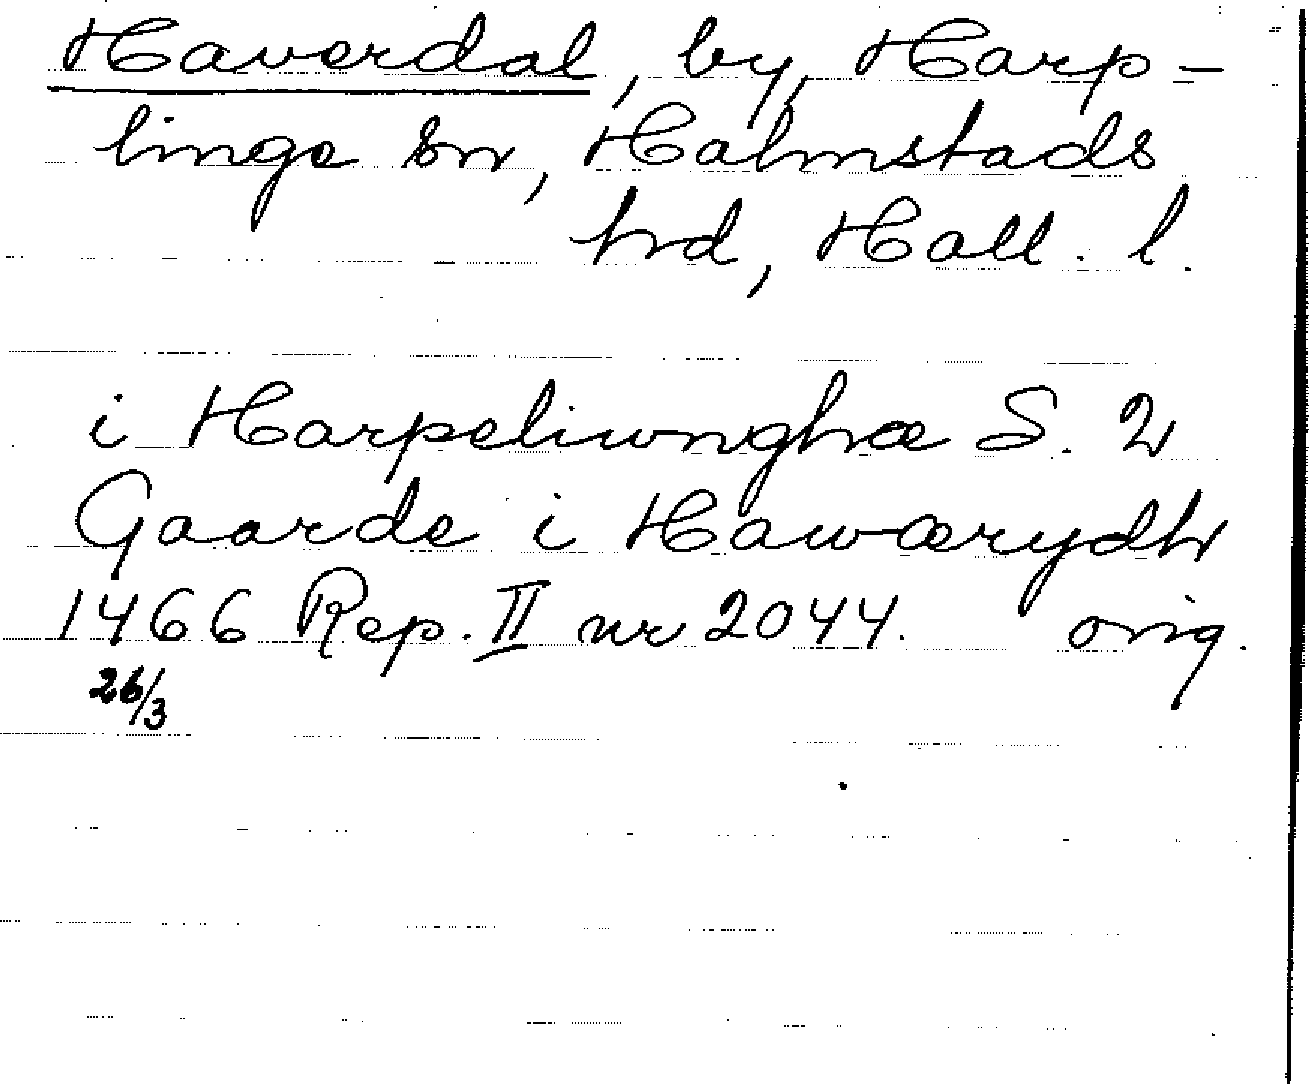 Haverdal, by, Harp-
linge sn, Halmstads
hrd, Hall. l.
i Harpeliwnghæ S. 2
Gaarde i Hawærydh
1466 Rep. II nr 2044. orig.
26/3